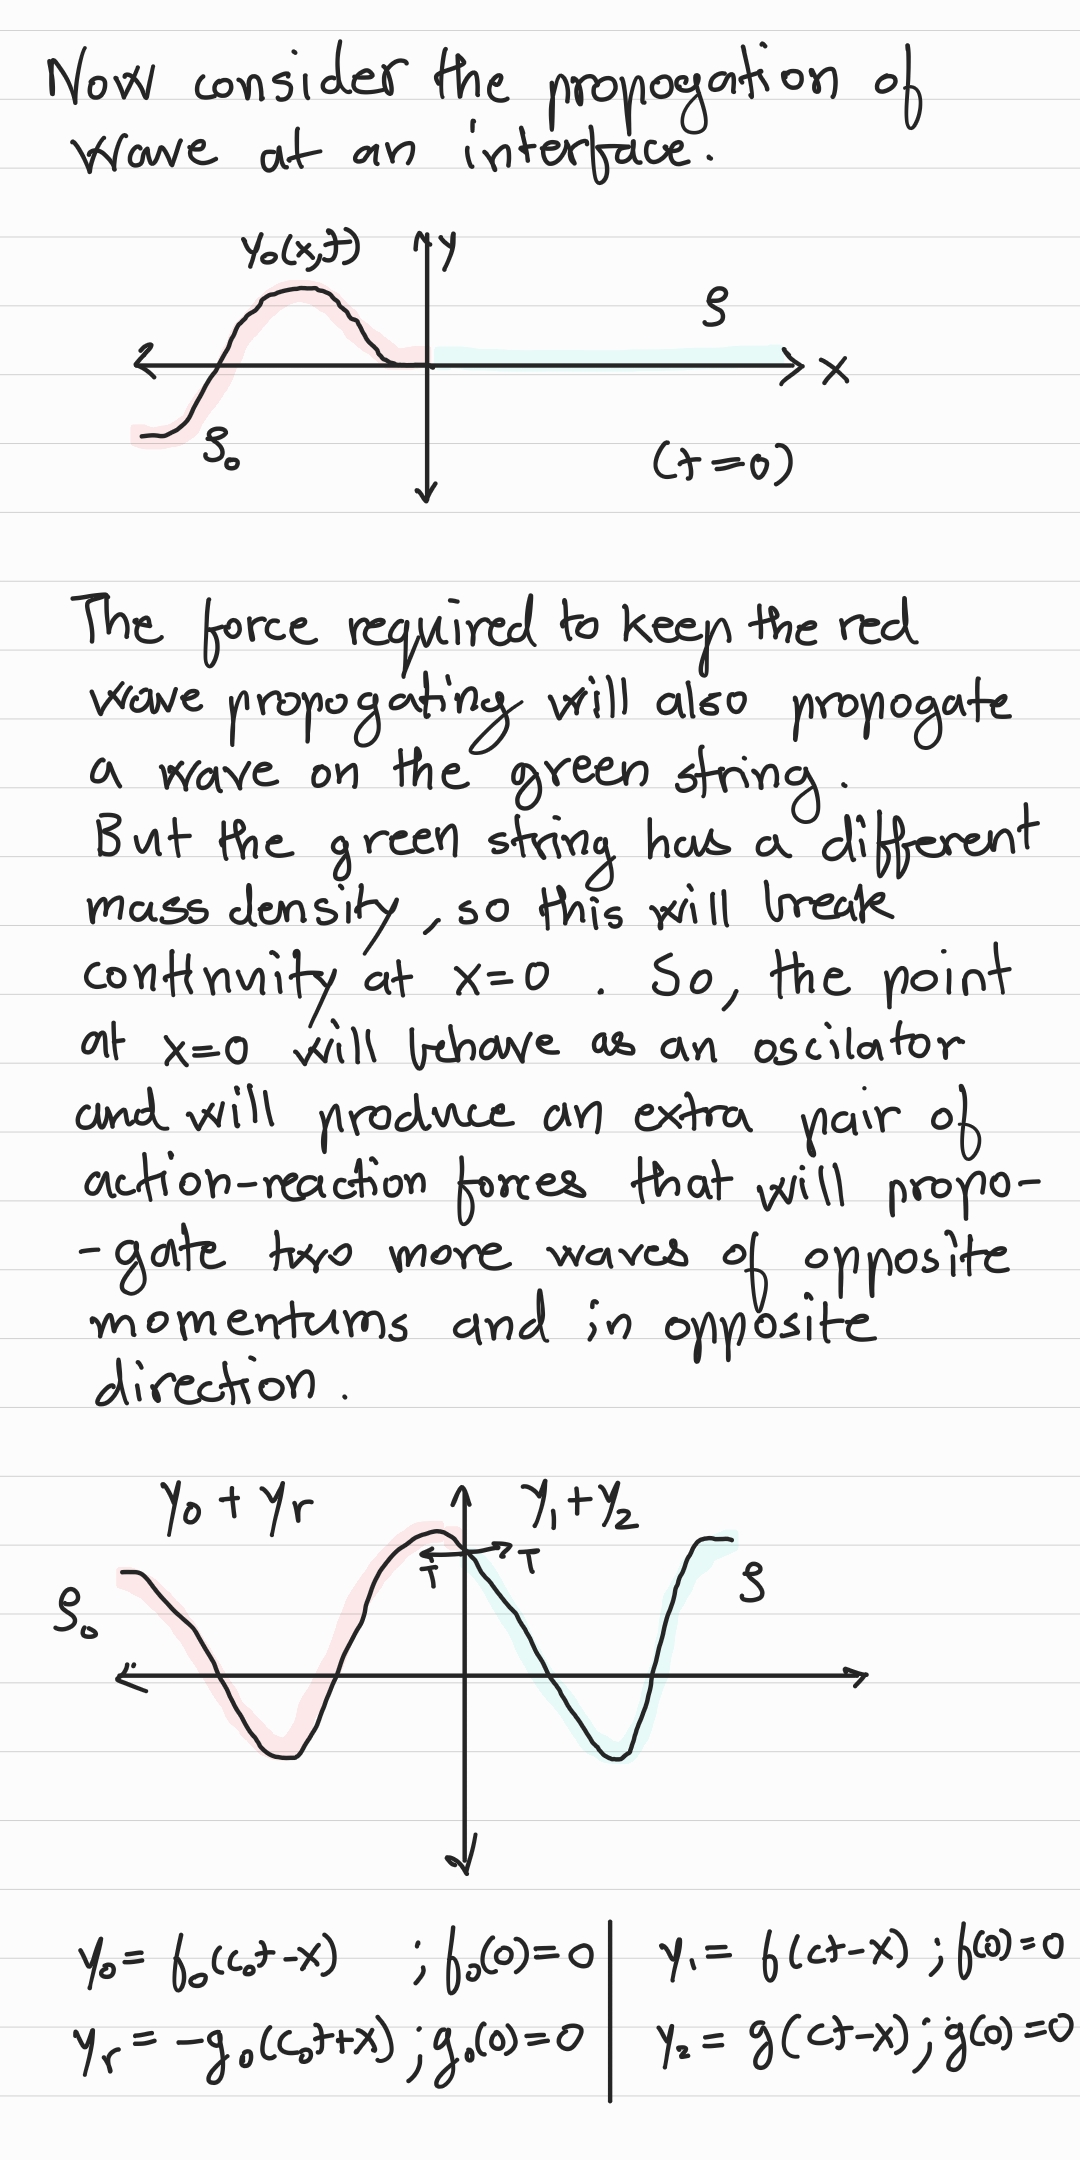 Now consider the propogation of
wave at an interface.
y₀(x,t)
y
ρ
x
ρ₀
(t=0)
The force required to keep the red
wave propogating will also propogate
a wave on the green string.
But the green string has a different
mass density, so this will break
continuity at x=0. So, the point
at x=0 will behave as an oscilator
and will produce an extra pair of
action-reaction forces that will propo-
-gate two more waves of opposite
momentums and in opposite
direction.
y₀ + yᵣ
y₁+y₂
T
T
ρ₀
ρ
y₀ = f₀(c₀t-x) ; f₀(0)=0
y₁ = f(ct-x) ; f(0)=0
yᵣ = -g₀(c₀t+x) ; g₀(0)=0
y₂ = g(ct-x) ; g(0)=0